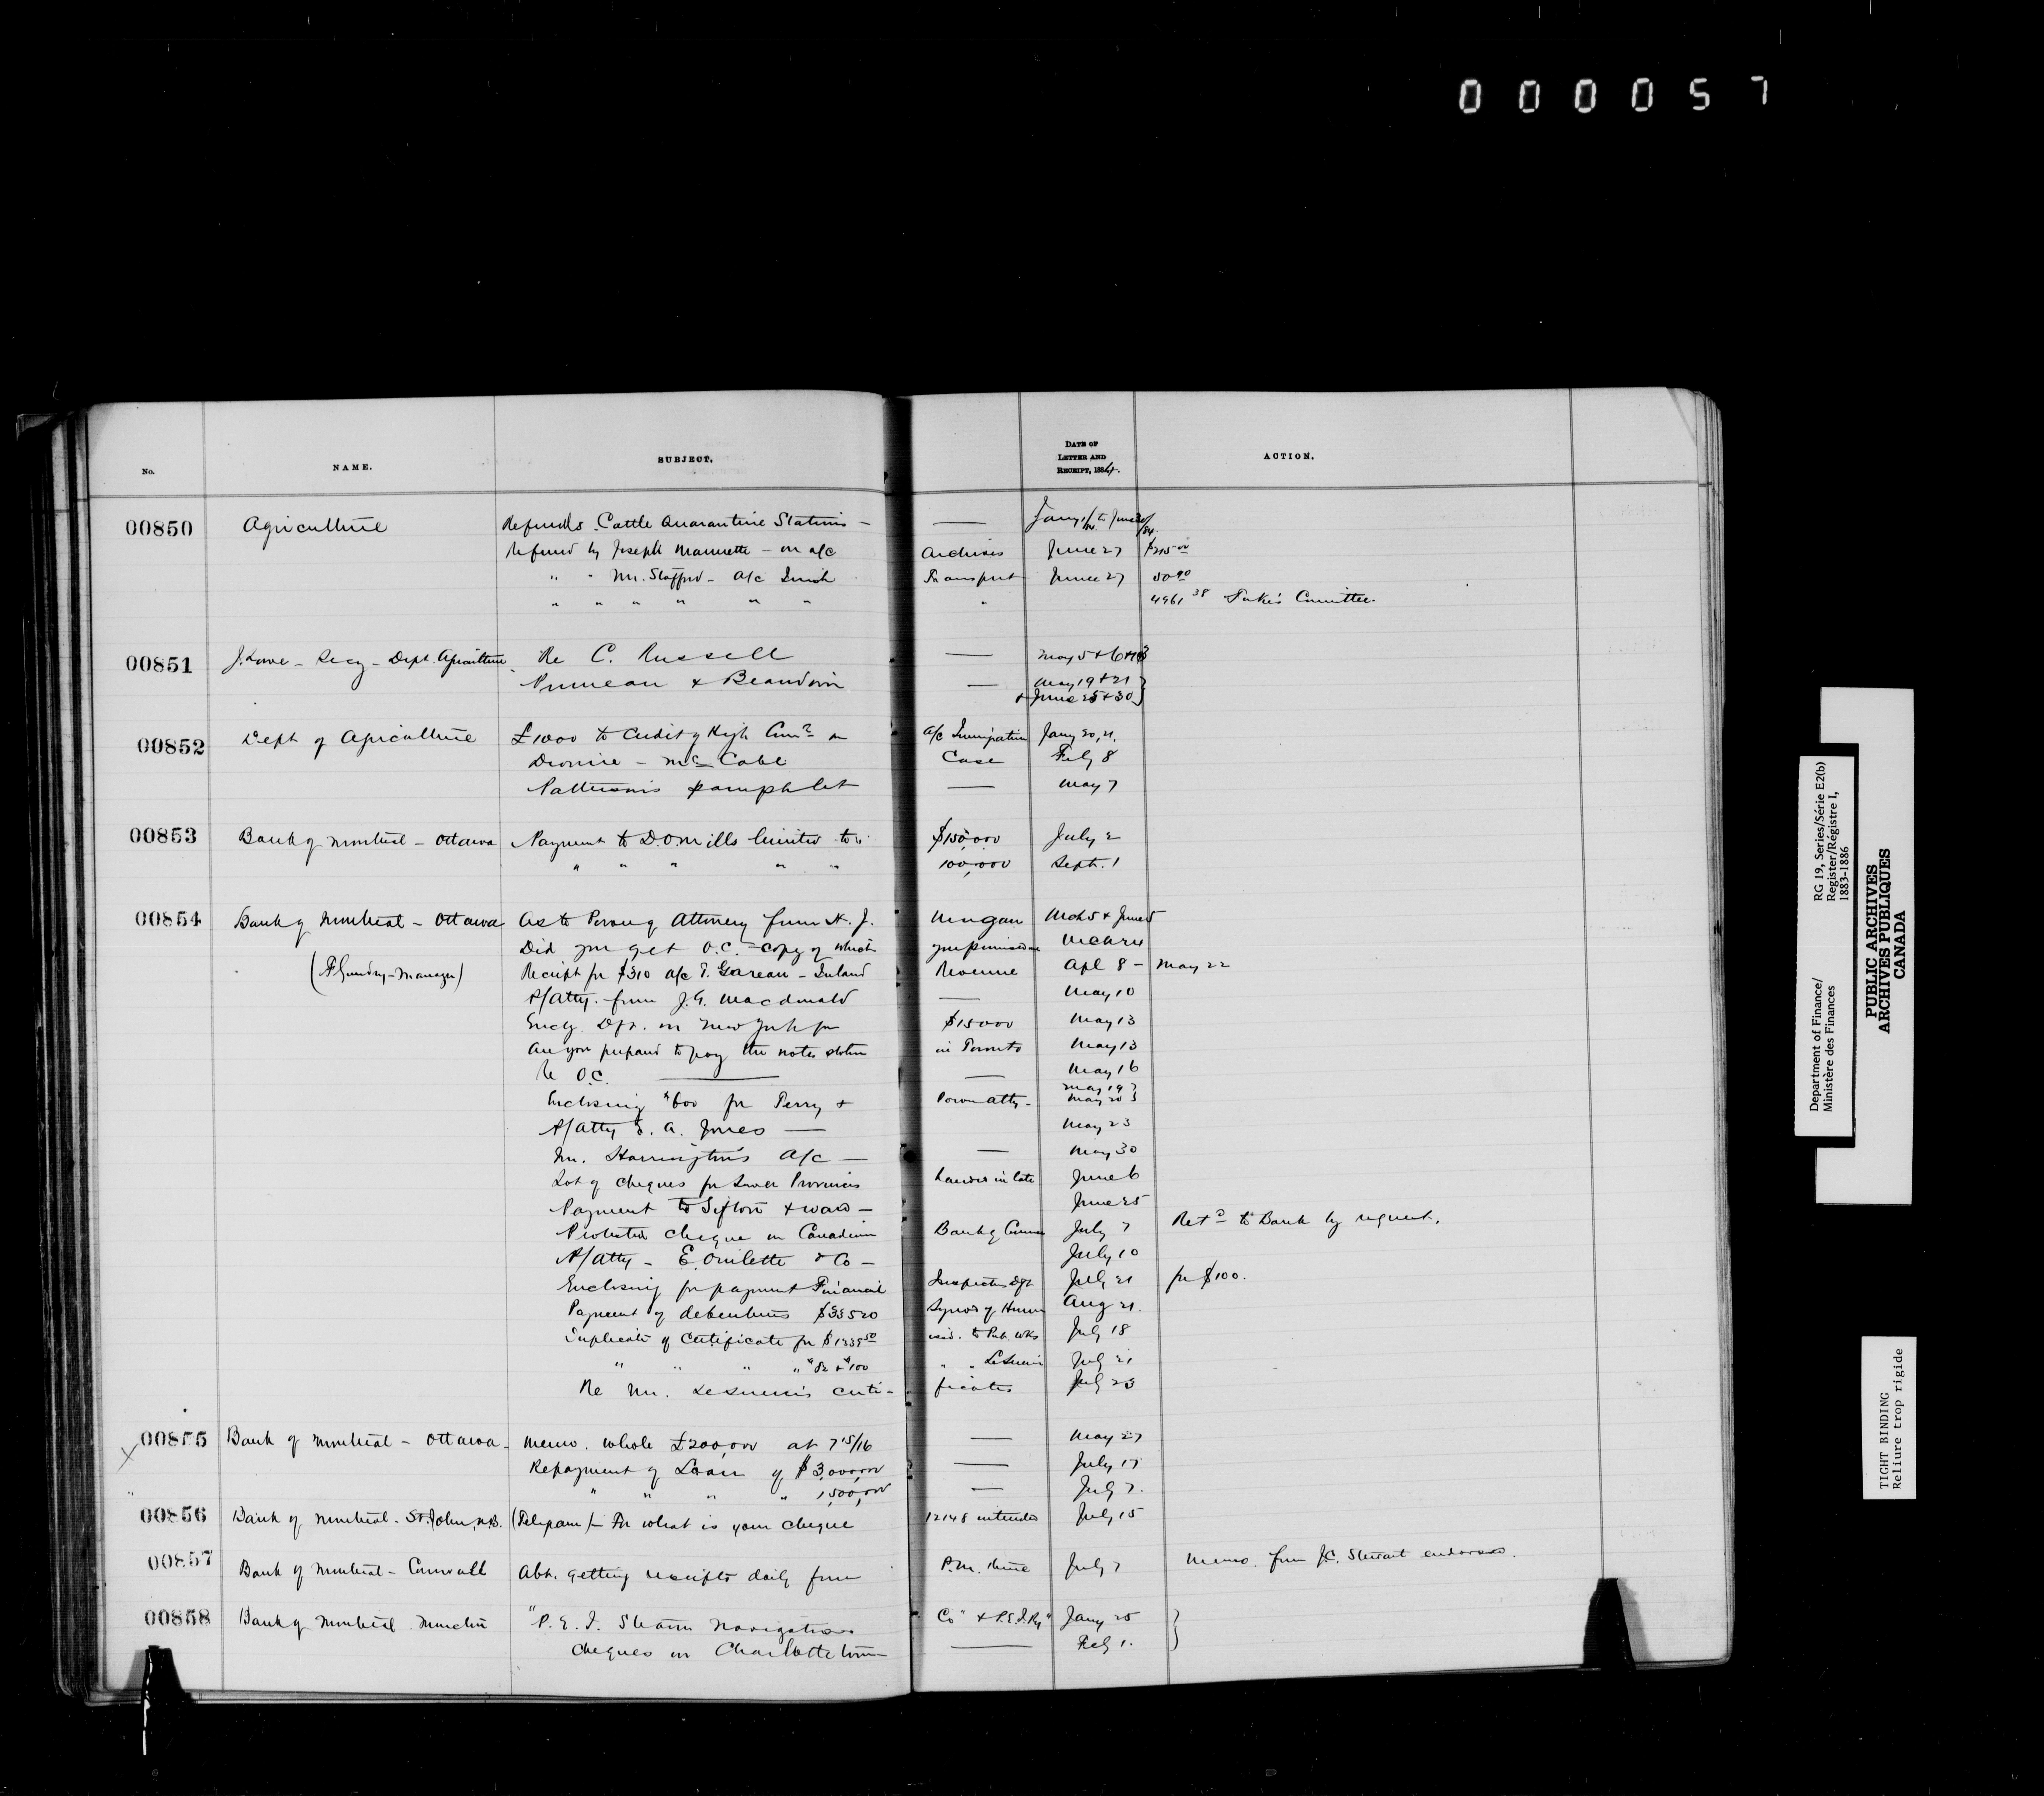 000057
No. NAME. SUBJECT. DATE OF LETTER AND RECEIPT, 1884. ACTION.
00850 Agriculture Refunds Cattle Quarantine Stations — — Jany 1/84 to June 30/84
Refund by Joseph Marmette — on a/c Archives June 27 $215 00
" " Mr. Stafford — a/c Transport June 27 50 90
" " " " " " " 4961 38 Committee.
00851 J. Lowe — Secy — Dept. Agriculture Re C. Russell — May 5 + 6 +
Primeau & Beaudoin — May 19 + 21
+ June 25 + 30
00852 Dept of Agriculture £1000 to Credit of High Comr on a/c Immigration Jany 20, 21.
Dionne — McCabe Case Feby 8
Patterson's pamphlet — May 7
00853 Bank of Montreal — Ottawa Payment to D.O. Mills limited to $150,000 July 2
" " " " " 100,000 Sept. 1
00854 Bank of Montreal — Ottawa As to Power of Attorney from H. J. Morgan Mch 5 + June 5
Did you get O.C. — copy of which you promised me
( Gundry — Manager) Receipt for $310 a/c Gareau — Inland Revenue Apl 8 — May 22
P/Atty. from J. A. Macdonald — May 10
Encg. Dft. on New York for $15000 May 13
Are you prepared to pay the notes stolen in Toronto May 13
Re O.C. — — May 16
Enclosing $600 for Perry + Power atty — May 19
May 20
P/Atty A. Jones — May 23
Mr. Harrington's a/c — — May 30
Lot of cheques for Lower Provinces handed in late June 6
Payment to Sifton & Ward — June 25
Protested cheque on Canadian Bank of Comm July 7 Retd to Bank by request.
P/Atty — E. Ouilette & Co — July 10
Enclosing for payment Financial Inspectors Dft July 21 for $100.
Payment of debentures $33520 Synod of Huron Aug 21.
Duplicate of Certificate for $1239 50 issd. to Pub. Wks July 18
" " " " $82 + $100 " " LeSueur July 21
Re Mr. LeSueur's certificates July 23
00855 Bank of Montreal — Ottawa — Memo. whole £200,000 at 7 15/16 — May 27
Repayment of Loan of $3,000,000 — July 17
" " " " 1,500,000 — July 7.
00856 Bank of Montreal — St. John, N.B. (Telegram) — For what is your cheque 12148 intended July 15
00857 Bank of Montreal — Cornwall Abt. getting receipts daily from P.M. there July 7 Memo. from J.C. Stewart endorsed.
00858 Bank of Montreal Moncton "P. E. I. Steam Navigation Co" & P.E.I. Ry" Jany 25
cheques on Charlottetown — — Feby 1.
Department of Finance/
Ministère des Finances
RG 19, Series/Série E2(b)
Register/Régistre I,
1883-1886
PUBLIC ARCHIVES
ARCHIVES PUBLIQUES
CANADA
TIGHT BINDING
Reliure trop rigide